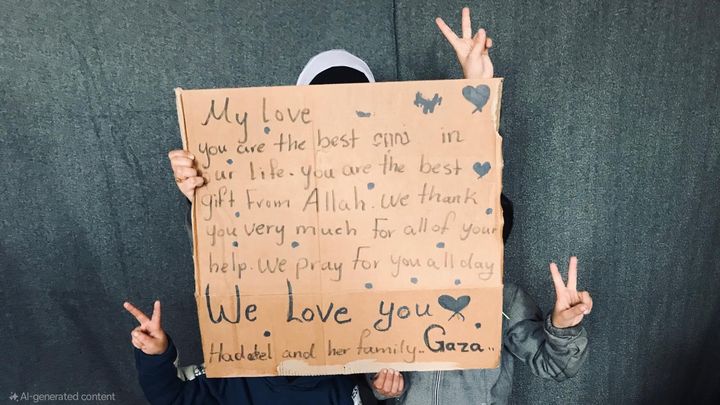 My Love
you are the best in
ur Life. you are the best
gift From Allah. we thank
you very much For all of your
help. We pray For you all day
We Love you
and her family.. Gaza..
AI-generated content